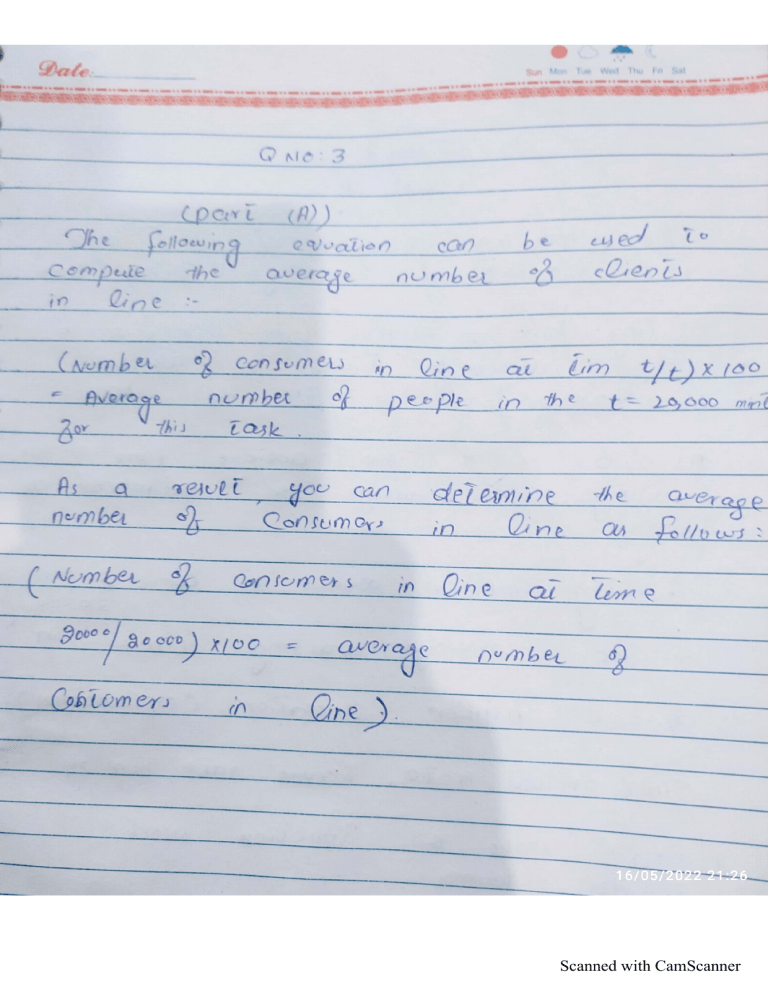 Date:
Sun Mon Tue Wed Thu Fri Sat
Q NO: 3
(part (A))
The following equation can be used to
compute the average number of clients
in line :-
(Number of consumers in line at tim t/t) x 100
= Average number of people in the t = 20,000 mint
for this task.
As a result, you can determine the average
number of consumers in line as follows:
(Number of consumers in line at time
20000/20000) x100 = average number of
Costomers in line).
16/05/2022 21:26
Scanned with CamScanner